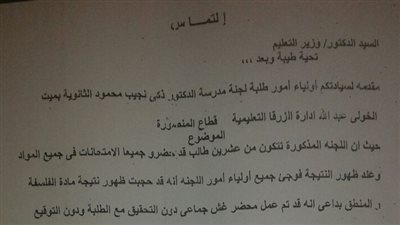 إلتمـــاس
السيد الدكتور/ وزير التعليم
تحية طيبة وبعد ،،،
مقدمه لسيادتكم أولياء أمور طلبة لجنة مدرسة الدكتور زكى نجيب محمود الثانوية بميت
الخولى عبد الله ادارة الزرقا التعليمية قطاع المنصورة
الموضوع
حيث ان اللجنه المذكورة تتكون من عشرين طالب قد حضرو جميعا الامتحانات فى جميع المواد
وعند ظهور النتيجة فوجئ جميع أولياء أمور اللجنه أنه قد حجبت ظهور نتيجة مادة الفلسفة
و المنطق بداعى انه قد تم عمل محضر غش جماعى دون التحقيق مع الطلبة ودون التوقيع